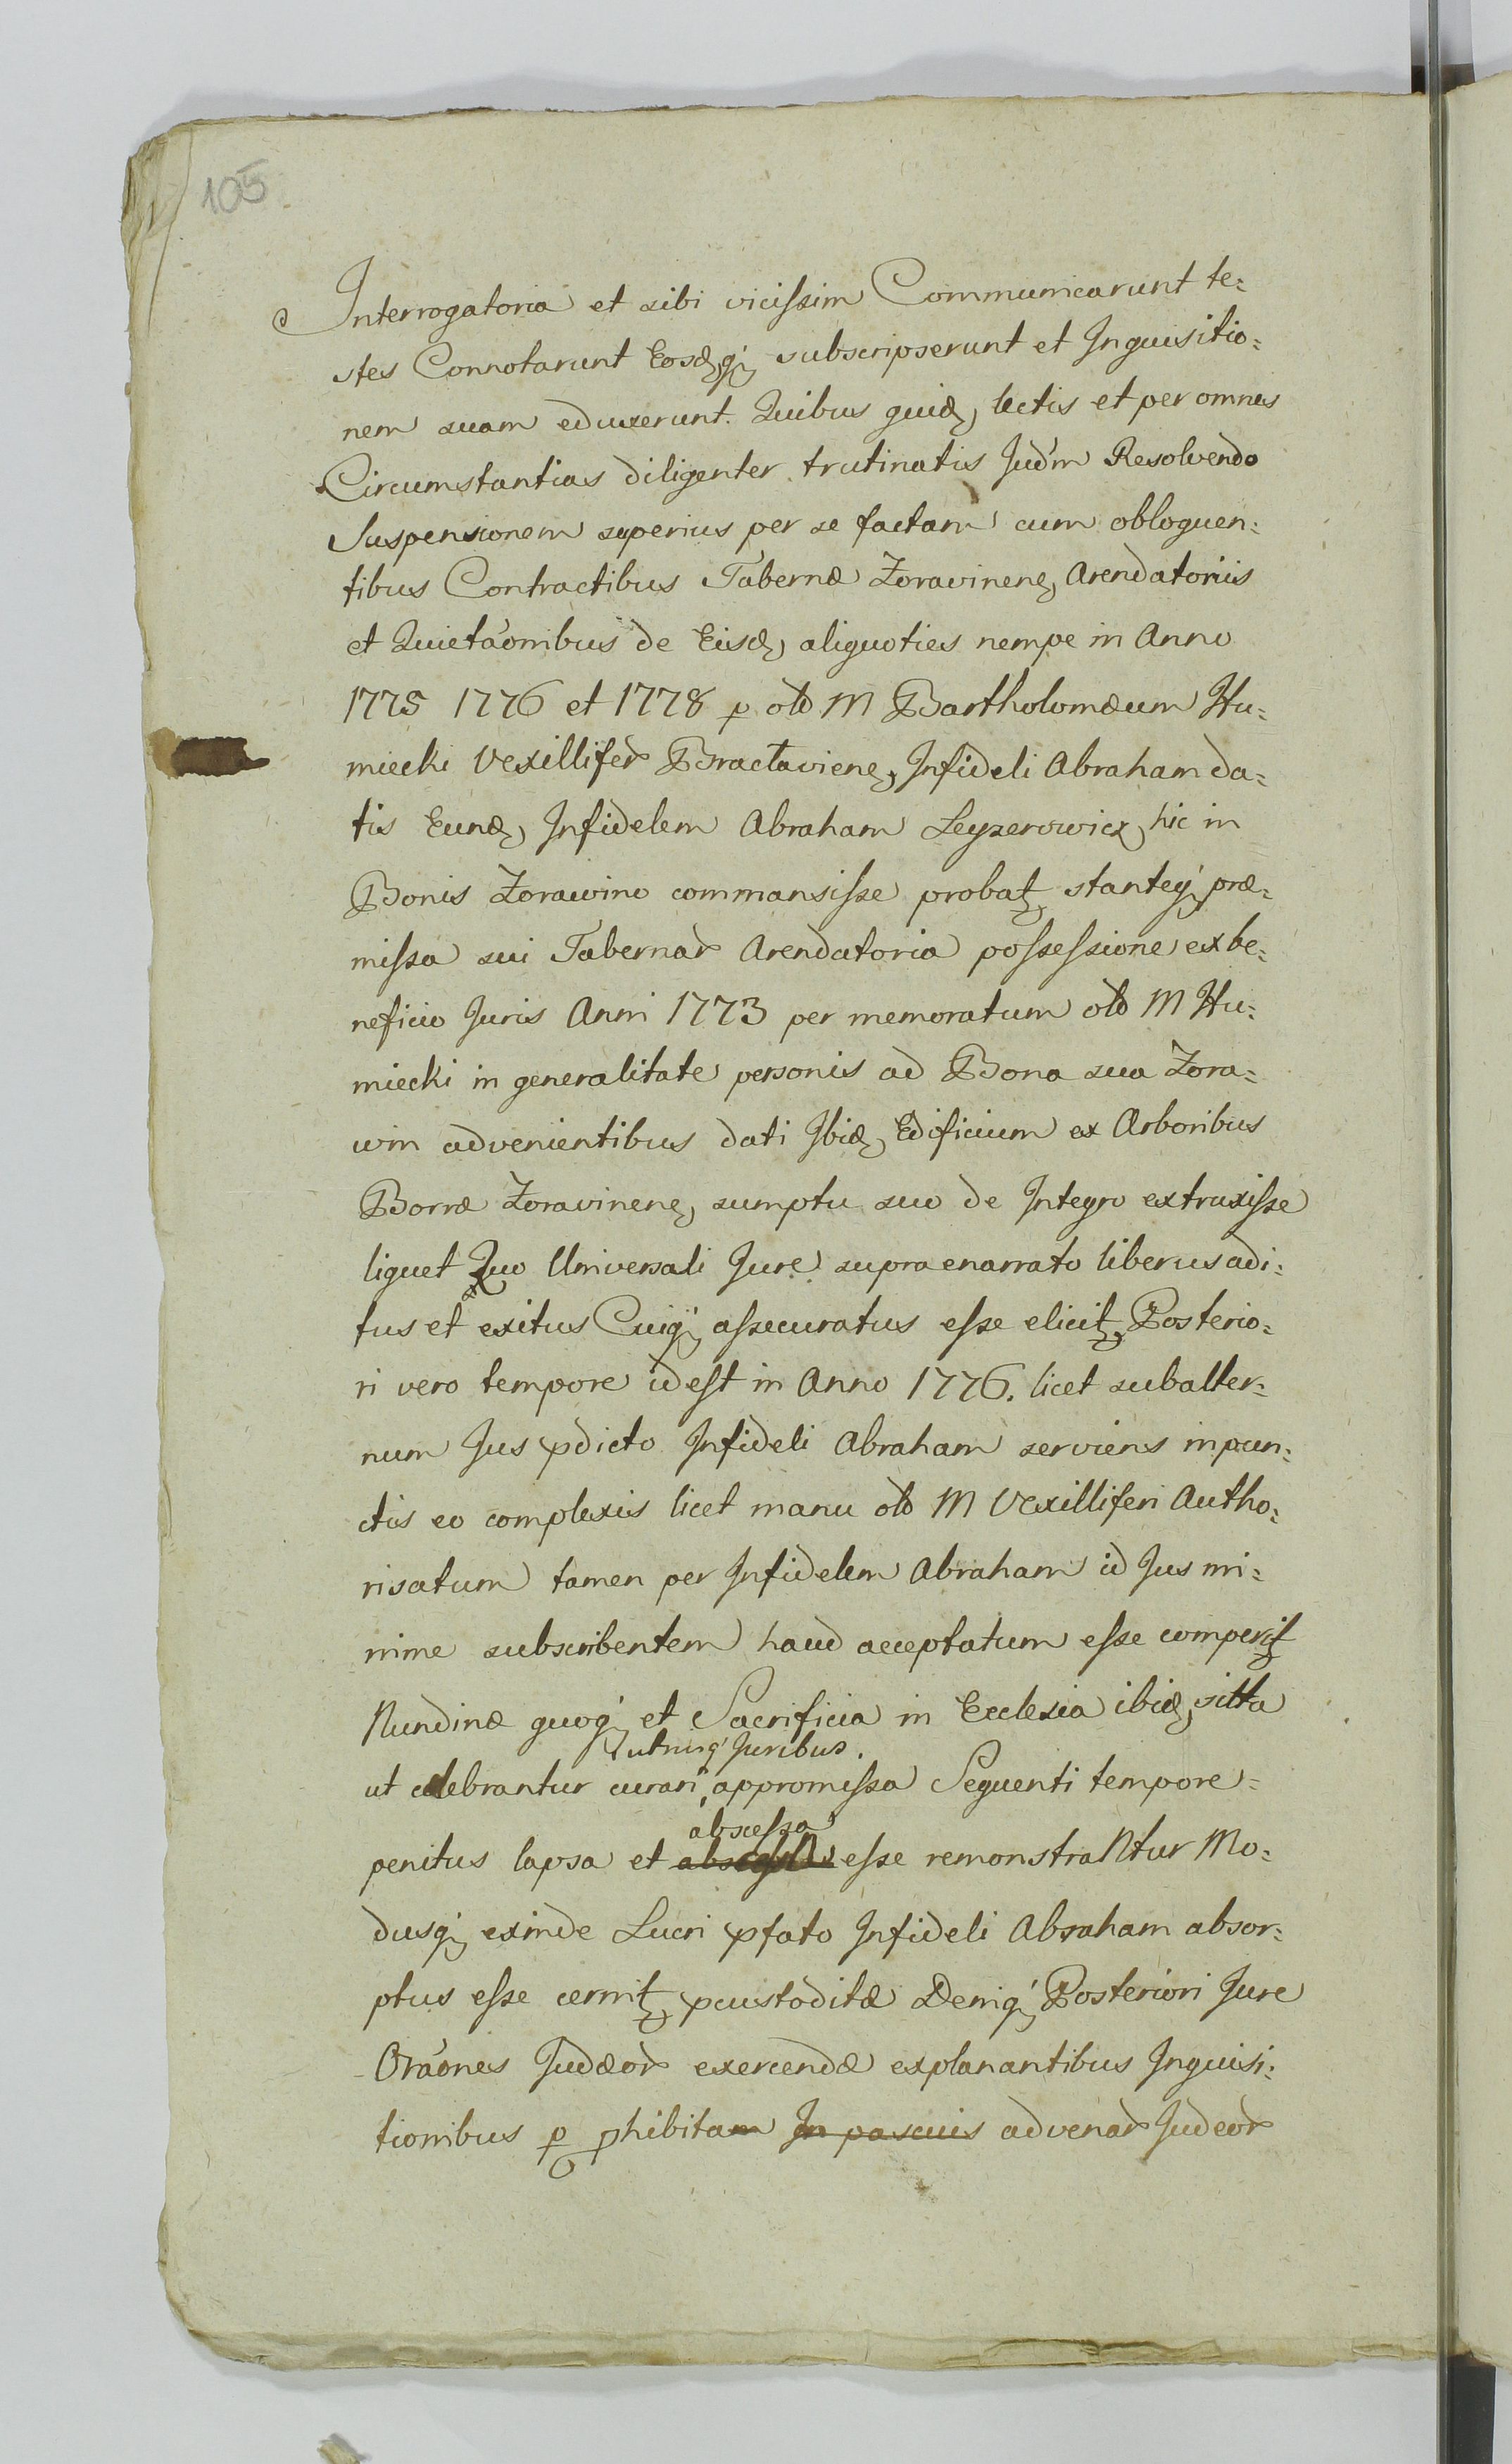 105.
Interrogatoria et sibi vicissim Communicarunt te=
stes Connotarunt Eosdq; subscripserunt et Inquisitio=
nem suam eduxerunt. Quibus quid, lectis et per omnes
Circumstantias diligenter trutinatis Judm Resolvendo
Suspensionem superius per se factam cum obloquen=
tibus Contractibus Tabernæ Zoravinen, Arendatoriis
et Quietãonibus de Eisd, aliquoties nempe in Anno
1775 1776 et 1778 p olo M Bartholomæum Hu=
miecki Vexilliferū Bractavien, Infideli Abraham da=
tis Eund, Infidelem Abraham Leyzerowicz, hic in
Bonis Zorawino commansisse probat, stanteq; præ=
missa sui Tabernar Arendatoria possessione ex be=
neficio Juris Anni 1773 per memoratum olo M Hu=
miecki in generalitate personis ad Bona sua Zora=
win advenientibus dati Ibid, Edificium ex Arboribus
Borræ Zoravinen, sumptu suo de Integro extruxisse
liquet Quo Universali Jure supra enarrato liberus adi=
tus et exitus Cuiq; assecuratus esse elicit, Posterio=
ri vero tempore id est in Anno 1776. licet subalter=
num Jus pdicto Infideli Abraham serviens in pun=
ctis eo complexis licet manu olo M Vexilliferi Autho=
risatum tamen per Infidelem Abraham id Jus mi=
nime subscribentem haud acceptatum esse comperit
Nundinæ quoq; et Sacrificia in Ecclesia ibid, sitta
utrisq; Juribus.
ut celebrantur curari, appromissa Sequenti tempore=
abscessa
penitus lapsa et esse remonstraNtur Mo=
dusq; exinde Lucri pfato Infideli Abraham absor=
ptus esse cernit, pcustoditæ Deniq; Posteriori Jure
Orãones Judæor exercendæ explanantibus Inquisi=
tionibus p phibitam In pascuis advenar Judeor